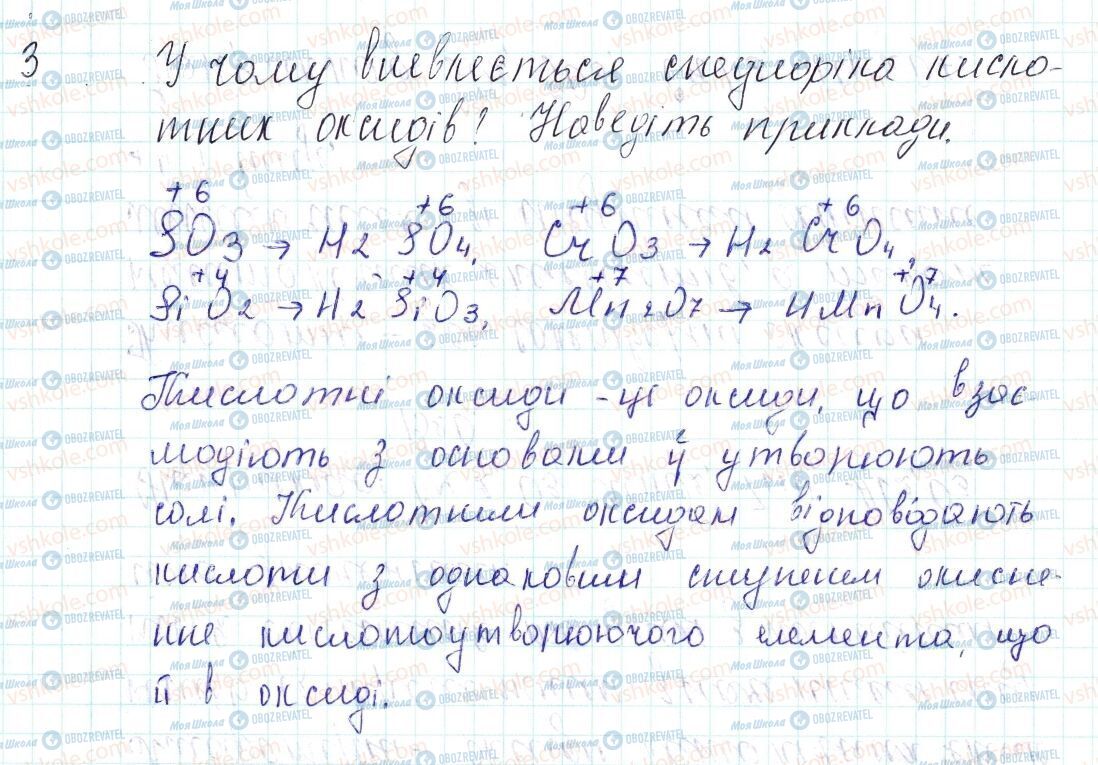 3 У чому виявляється специфіка кисло-
тних оксидів? Наведіть приклади.
+6 +6 +6 +6
SO3 → H2SO4, CrO3 → H2CrO4,
+4 +4 +7 +7
SiO2 → H2SiO3, Mn2O7 → HMnO4.
Кислотні оксиди - це оксиди, що взає-
модіють з основами й утворюють
солі. Кислотним оксидам відповідають
кислоти з однаковим ступенем окисне-
ння кислотоутворюючого елемента, що
й в оксиді.